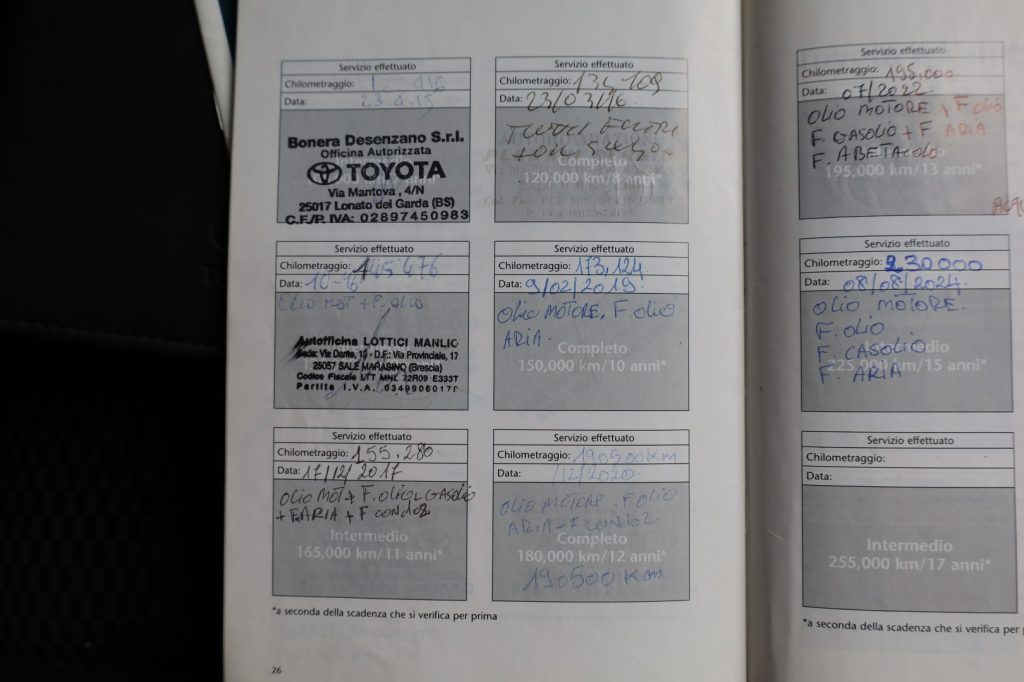 Servizio effettuato
Chilometraggio:
Data: 23.4.15
Bonera Desenzano S.r.l.
Officina Autorizzata
TOYOTA
Via Mantova, 4/N
25017 Lonato del Garda (BS)
C.F./P. IVA: 02897450983
Servizio effettuato
Chilometraggio: 134,109
Data: 23/03/16
Completo
120,000 km/8 anni*
Servizio effettuato
Chilometraggio: 145 676
Data: 10-16
OLIO MOT + F. OLIO
Autofficina LOTTICI MANLIO
Sede: Via Dante, 13 - D.F.: Via Provinciale, 17
25057 SALE MARASINO (Brescia)
Codice Fiscale LTT MNL 72R09 E333T
Partita I.V.A. 03499060170
Servizio effettuato
Chilometraggio: 173,124
Data: 9/02/2019
OLIO MOTORE, F. OLIO
ARIA.
Completo
150,000 km/10 anni*
Servizio effettuato
Chilometraggio: 155.280
Data: 17/12/2017
OLIO MOT + F. OLIO GASOLIO
+ F. ARIA + F CONDOZ
Intermedio
165,000 km/11 anni*
Servizio effettuato
Chilometraggio: 190500 Km
Data: /12/2020
OLIO MOTORE. F OLIO
ARIA - F CONDOZ.
Completo
180,000 km/12 anni*
190500 Km
*a seconda della scadenza che si verifica per prima
26
Servizio effettuato
Chilometraggio: 195,000
Data: 07/2022
OLIO MOTORE + F OLIO
F. GASOLIO + F ARIA
F. ABETACOLO
195,000 km/13 anni*
Servizio effettuato
Chilometraggio: 230000
Data: 08/08/2024
OLIO MOTORE.
F. OLIO
F. CASOLIO
Intermedio
225,000 km/15 anni*
F. ARIA
Servizio effettuato
Chilometraggio:
Data:
Intermedio
255,000 km/17 anni*
*a seconda della scadenza che si verifica per